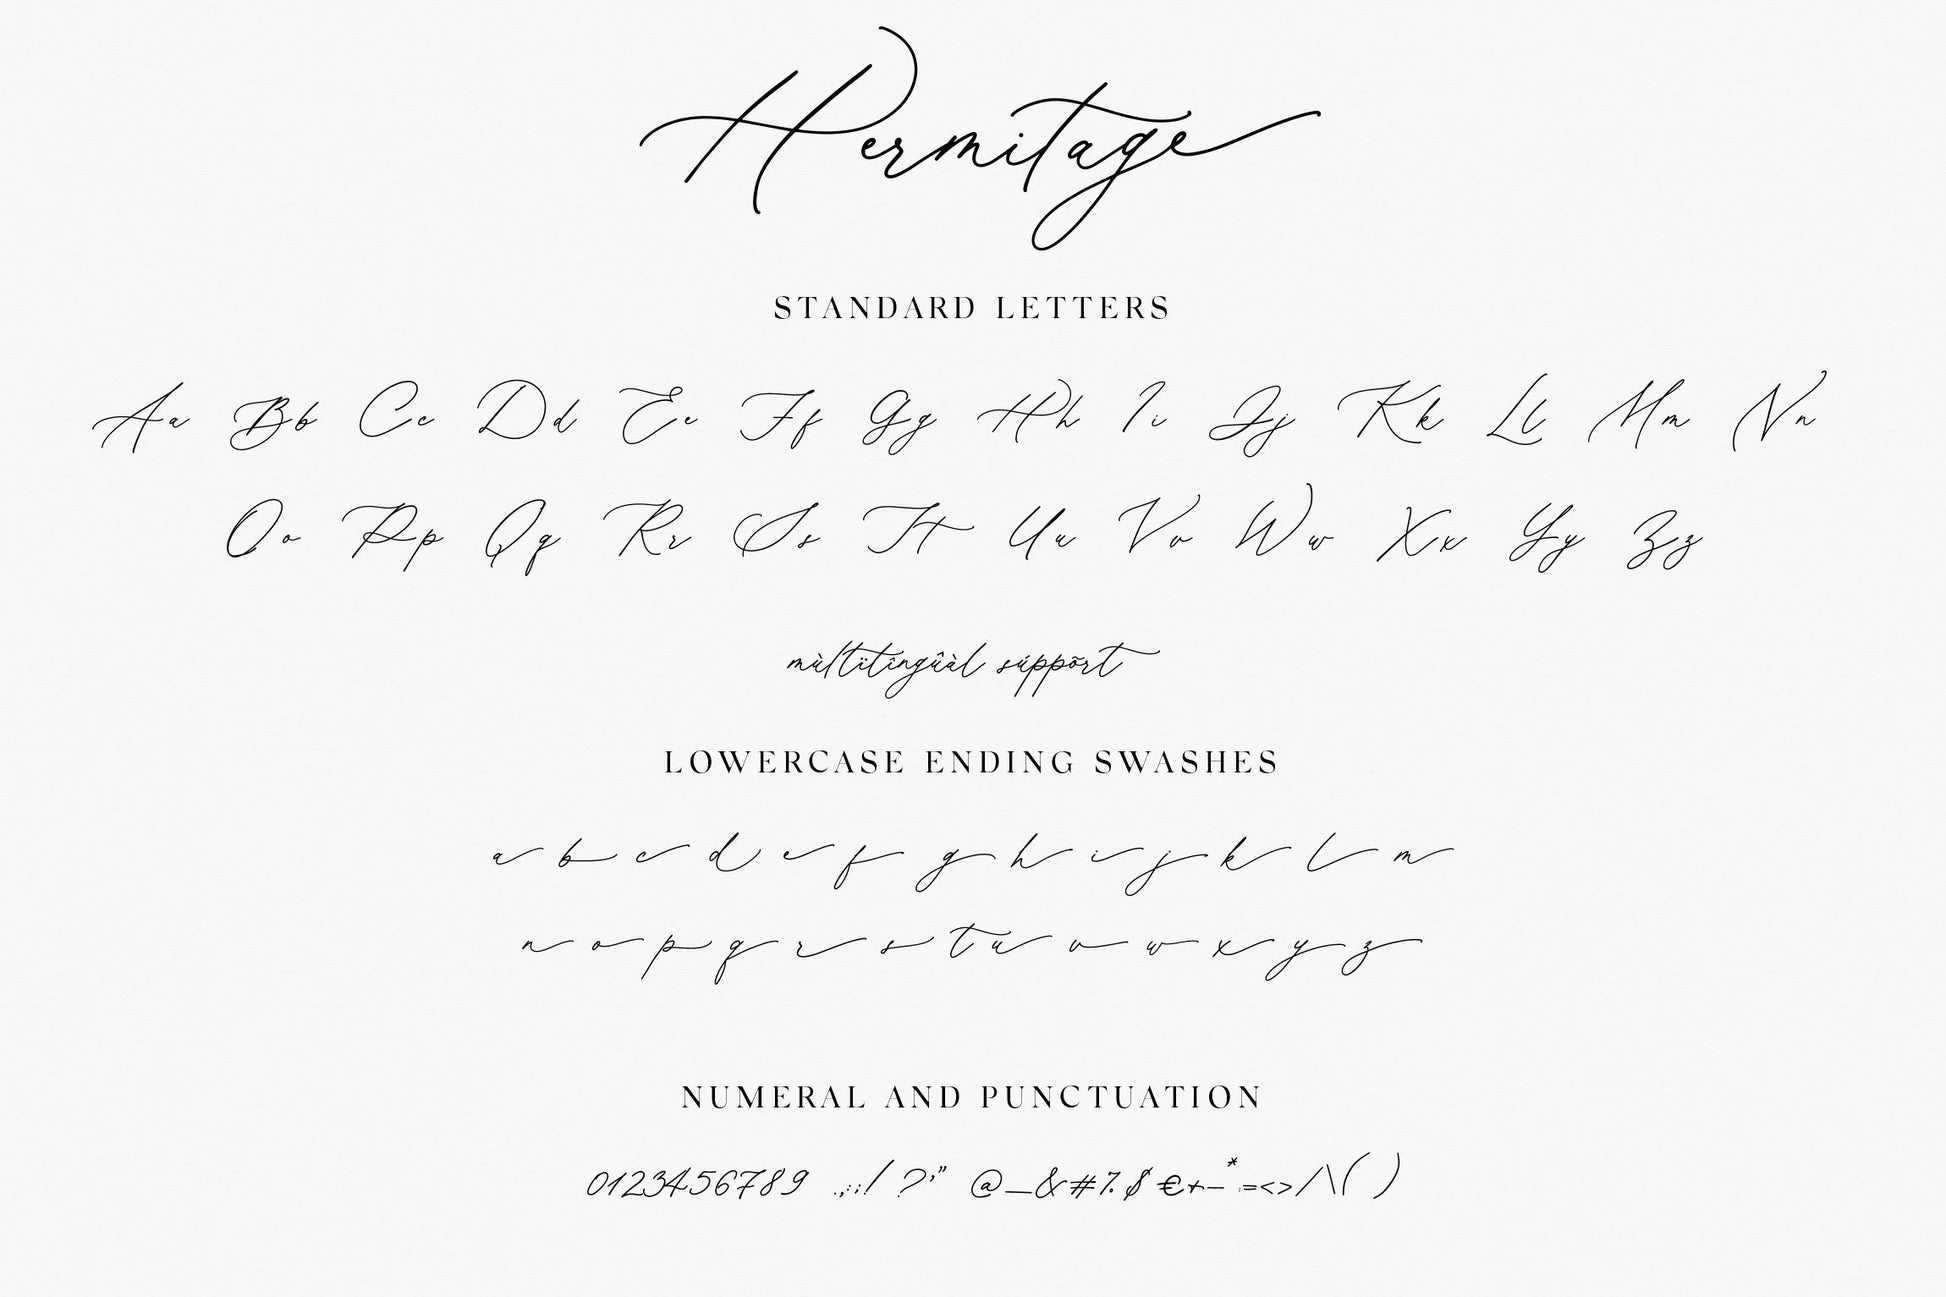 Hermitage
STANDARD LETTERS
Aa Bb Cc Dd Ee Ff Gg Hh Ii Jj Kk Ll Mm Nn
Oo Pp Qq Rr Ss Tt Uu Vv Ww Xx Yy Zz
mùltïlîngûàl súppõrt
LOWERCASE ENDING SWASHES
a b c d e f g h i j k l m
n o p q r s t u v w x y z
NUMERAL AND PUNCTUATION
0123456789 .,:;! ?'" @_&#%$€+-*=<>/\( )